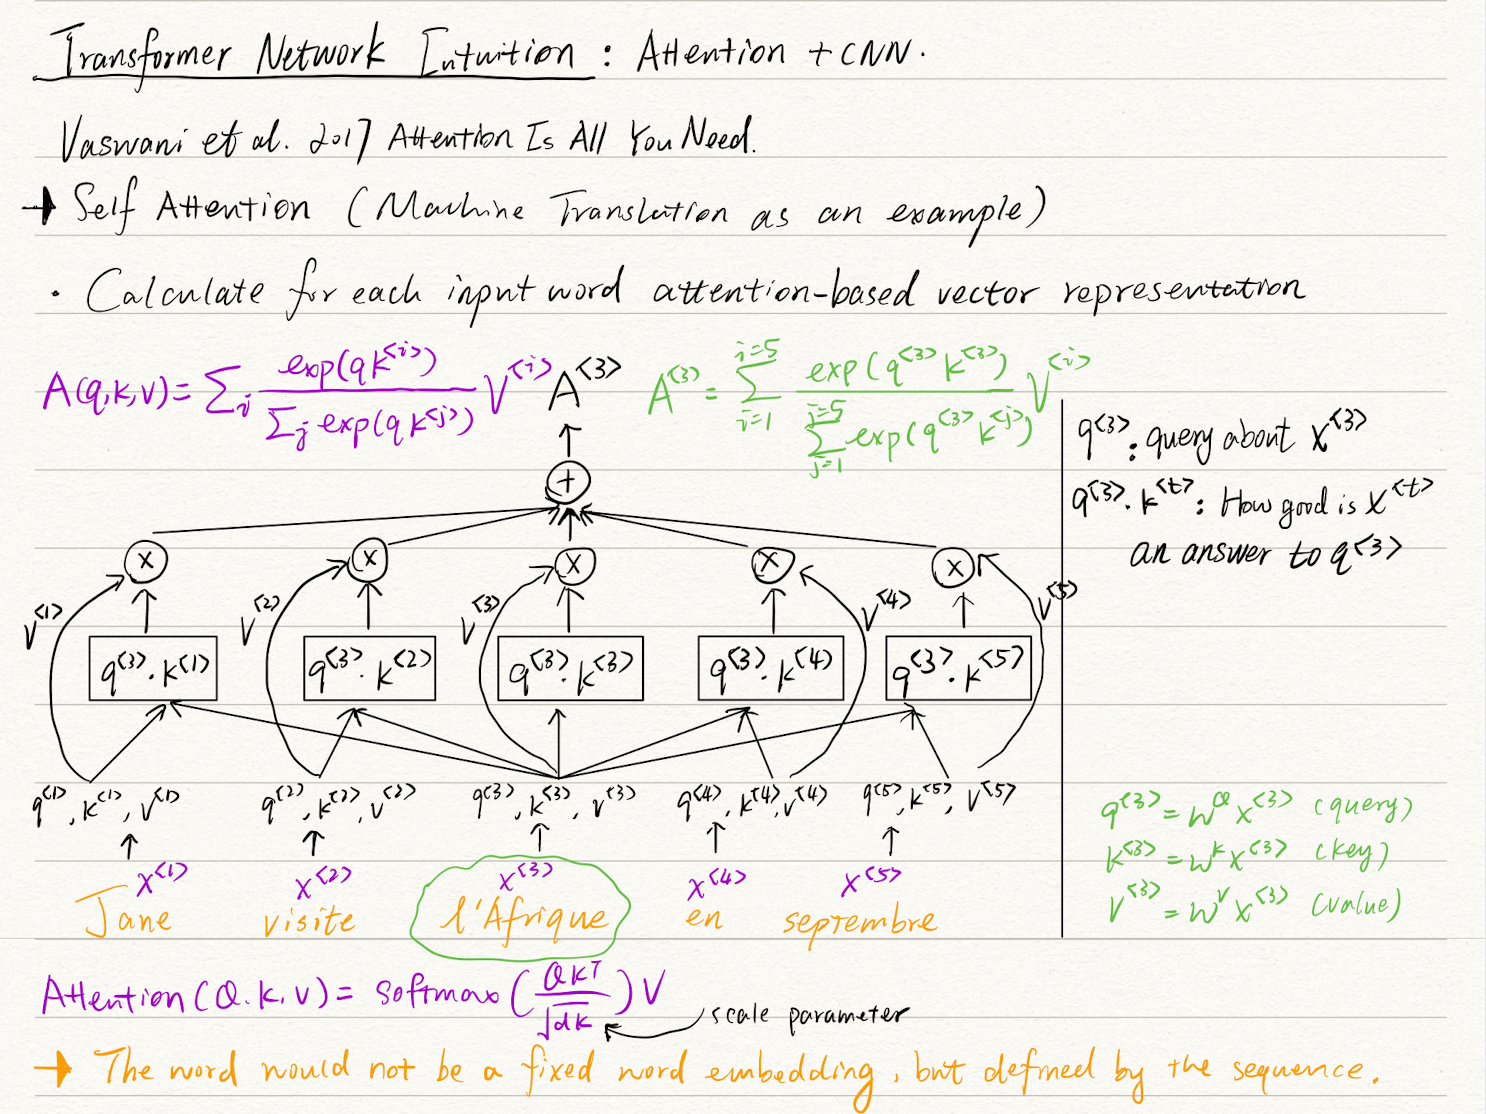 Transformer Network Intuition : Attention + CNN.
Vaswani et al. 2017 Attention Is All You Need.
→ Self Attention (Machine Translation as an example)
· Calculate for each input word attention-based vector representation
A(q,k,v) = Σᵢ exp(q k^<i>) / Σⱼ exp(q k^<j>) V^<i>
A^<3>
A^<3> = Σ_{i=1}^{i=5} exp(q^<3> k^<3>) / Σ_{j=1}^{j=5} exp(q^<3> k^<j>) V^<i>
q^<3> : query about x^<3>
q^<3> . k^<t> : How good is x^<t>
an answer to q^<3>
+
x x x x x
V^<1> V^<2> V^<3> V^<4> V^<5>
q^<3> . k^<1> q^<3> . k^<2> q^<3> . k^<3> q^<3> . k^<4> q^<3> . k^<5>
q^<1>, k^<1>, v^<1> q^<2>, k^<2>, v^<2> q^<3>, k^<3>, v^<3> q^<4>, k^<4>, v^<4> q^<5>, k^<5>, v^<5>
x^<1> x^<2> x^<3> x^<4> x^<5>
Jane visite l'Afrique en septembre
q^<3> = W^Q x^<3> (query)
k^<3> = W^K x^<3> (key)
V^<3> = W^V x^<3> (value)
Attention (Q.K.V) = softmax (QK^T / √dk) V
scale parameter
→ The word would not be a fixed word embedding, but defined by the sequence.